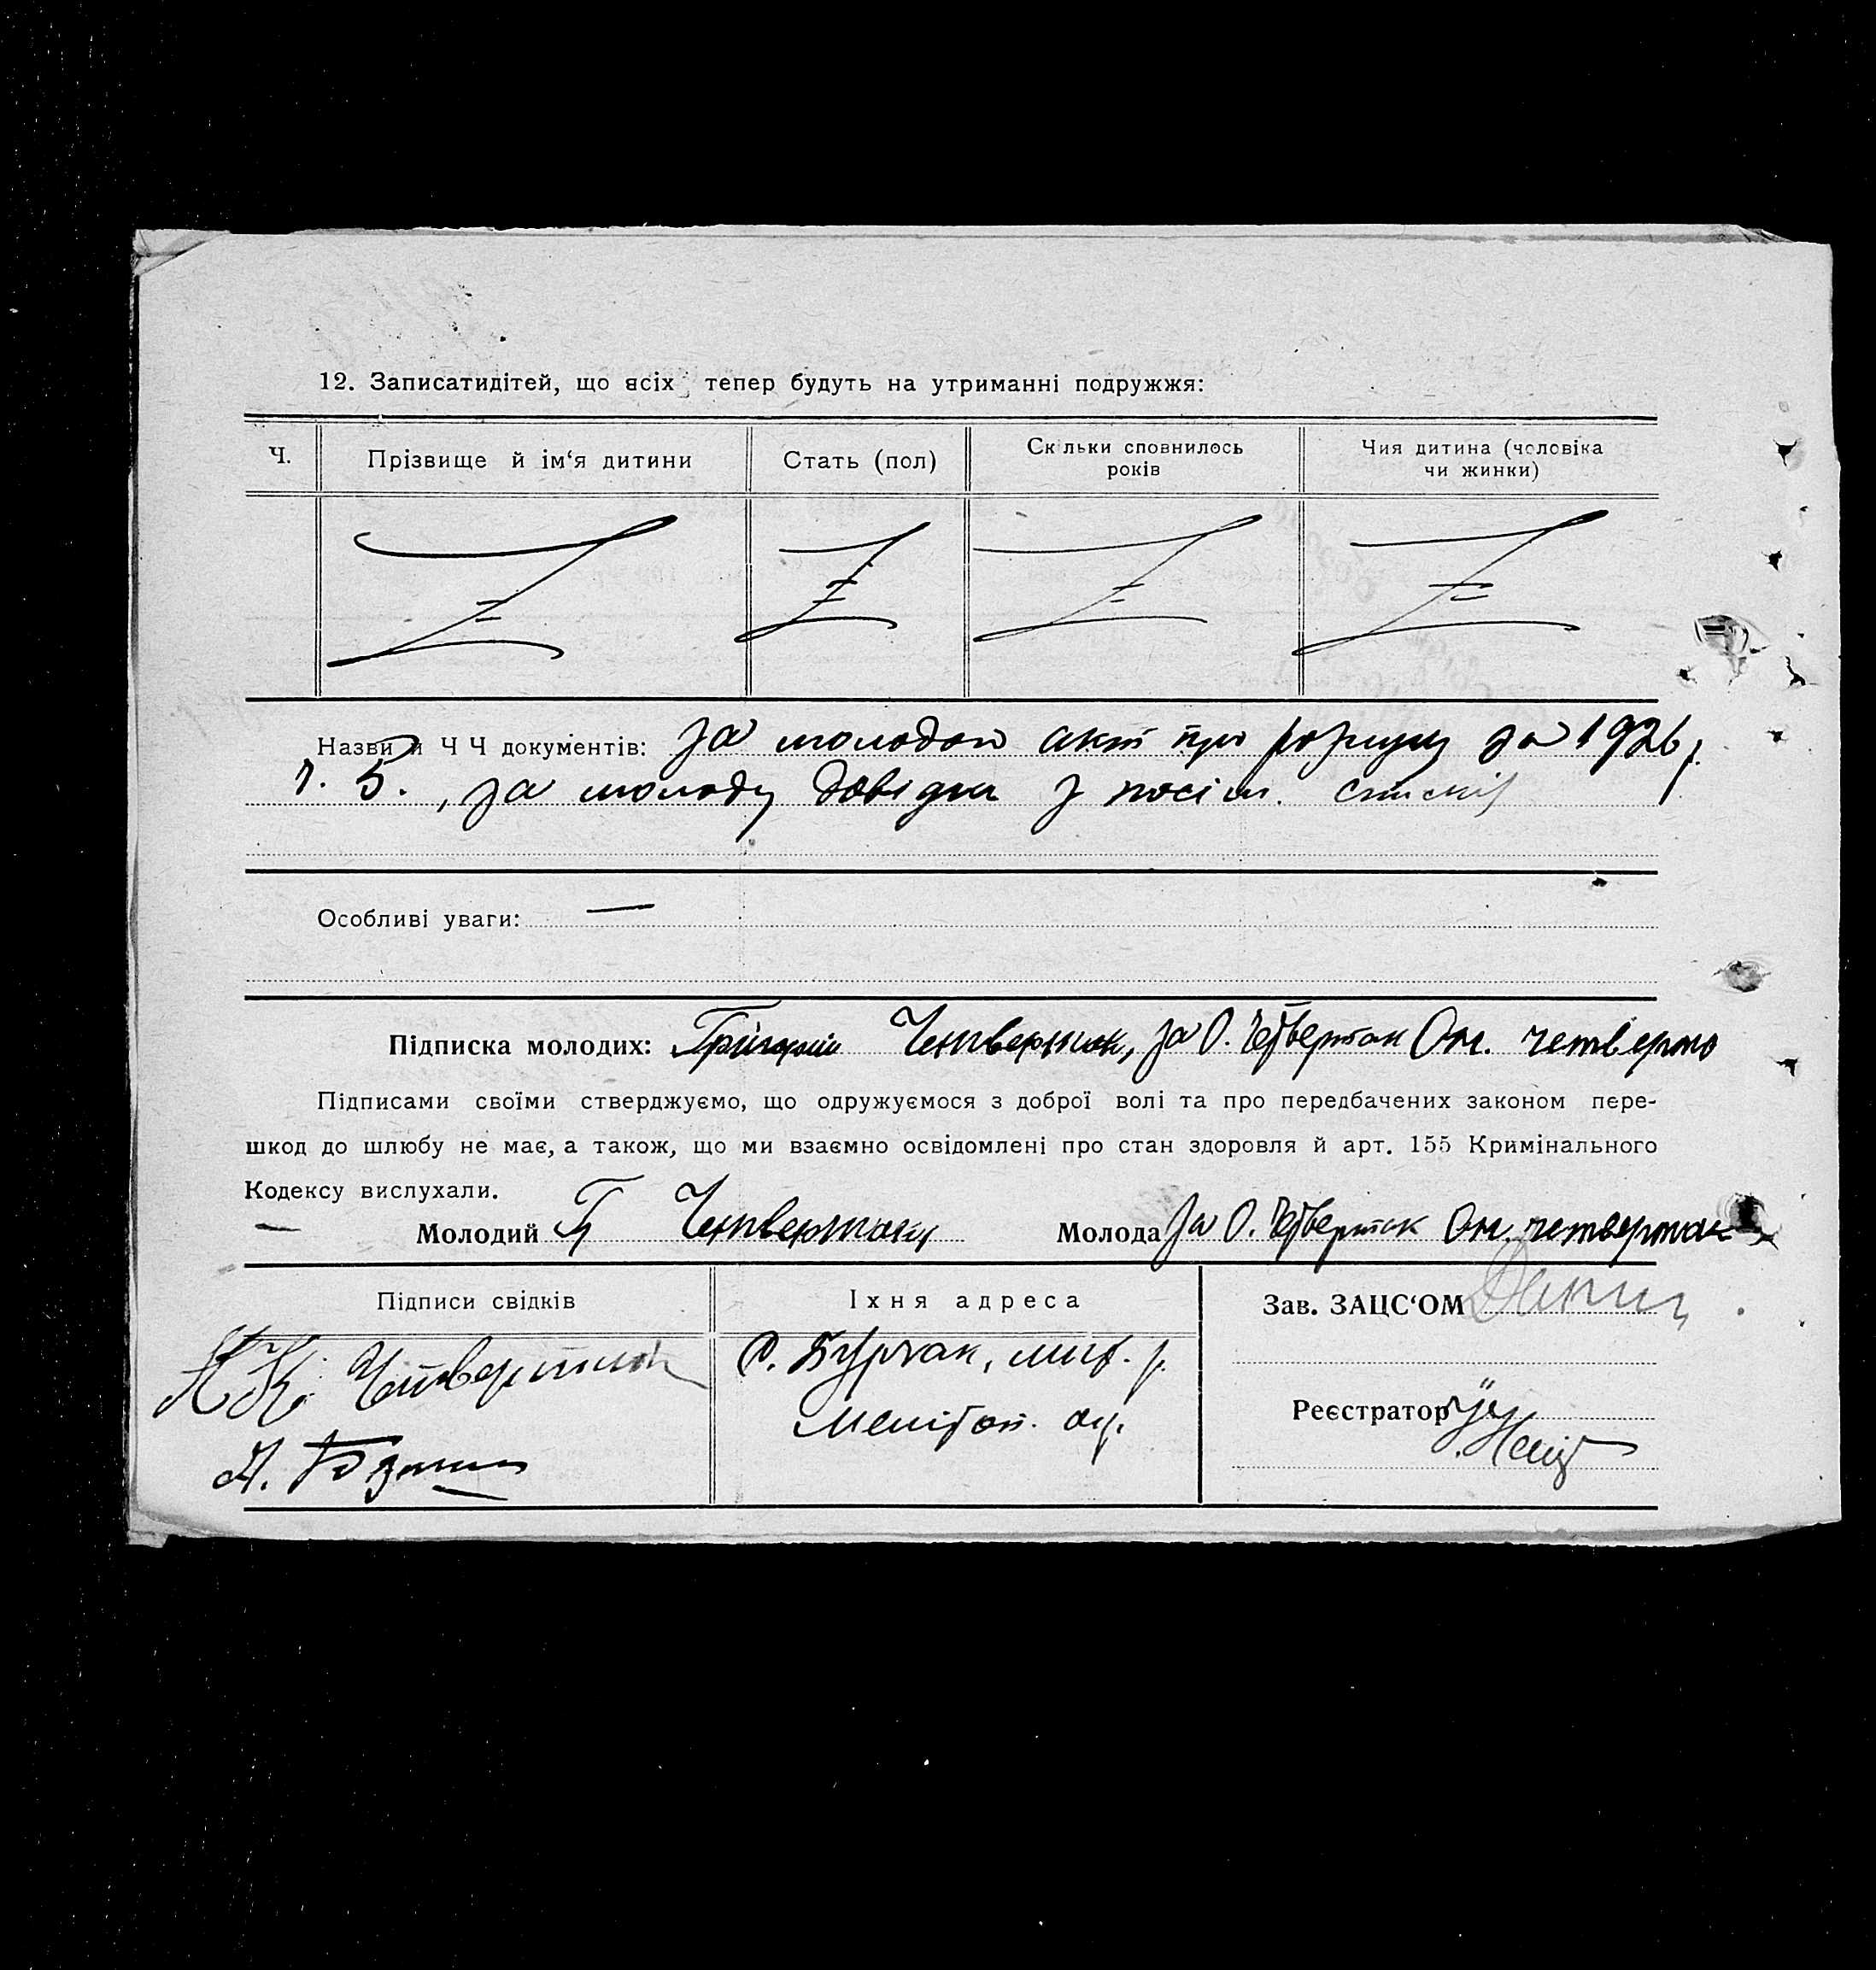 12. Записатидітей, що всіх тепер будуть на утриманні подружжя:
Ч.
Прізвище й ім‘я дитини
Стать (пол)
Скільки сповнилось
років
Чия дитина (чоловіка
чи жинки)
Назви й Ч Ч документів: за молодого акт про розлуку за 1926 р.
ч. 5., за молоду довідка з посім. списків
Особливі уваги: —
Підписка молодих: Григорій Четвертак, за О. Четвертак Он. четверта
Підписами своїми стверджуємо, що одружуємося з доброї волі та про передбачених законом пере-
шкод до шлюбу не має, а також, що ми взаємно освідомлені про стан здоровля й арт. 155 Кримінального
Кодексу вислухали.
— Молодий Г Четвертак Молода за О. Четвертак Он. четвертак
Підписи свідків
Їхня адреса
Зав. ЗАЦС‘ОМ
Четвертак
с. Бурчак, мих. р.
Меліток. ок.
Реєстратор